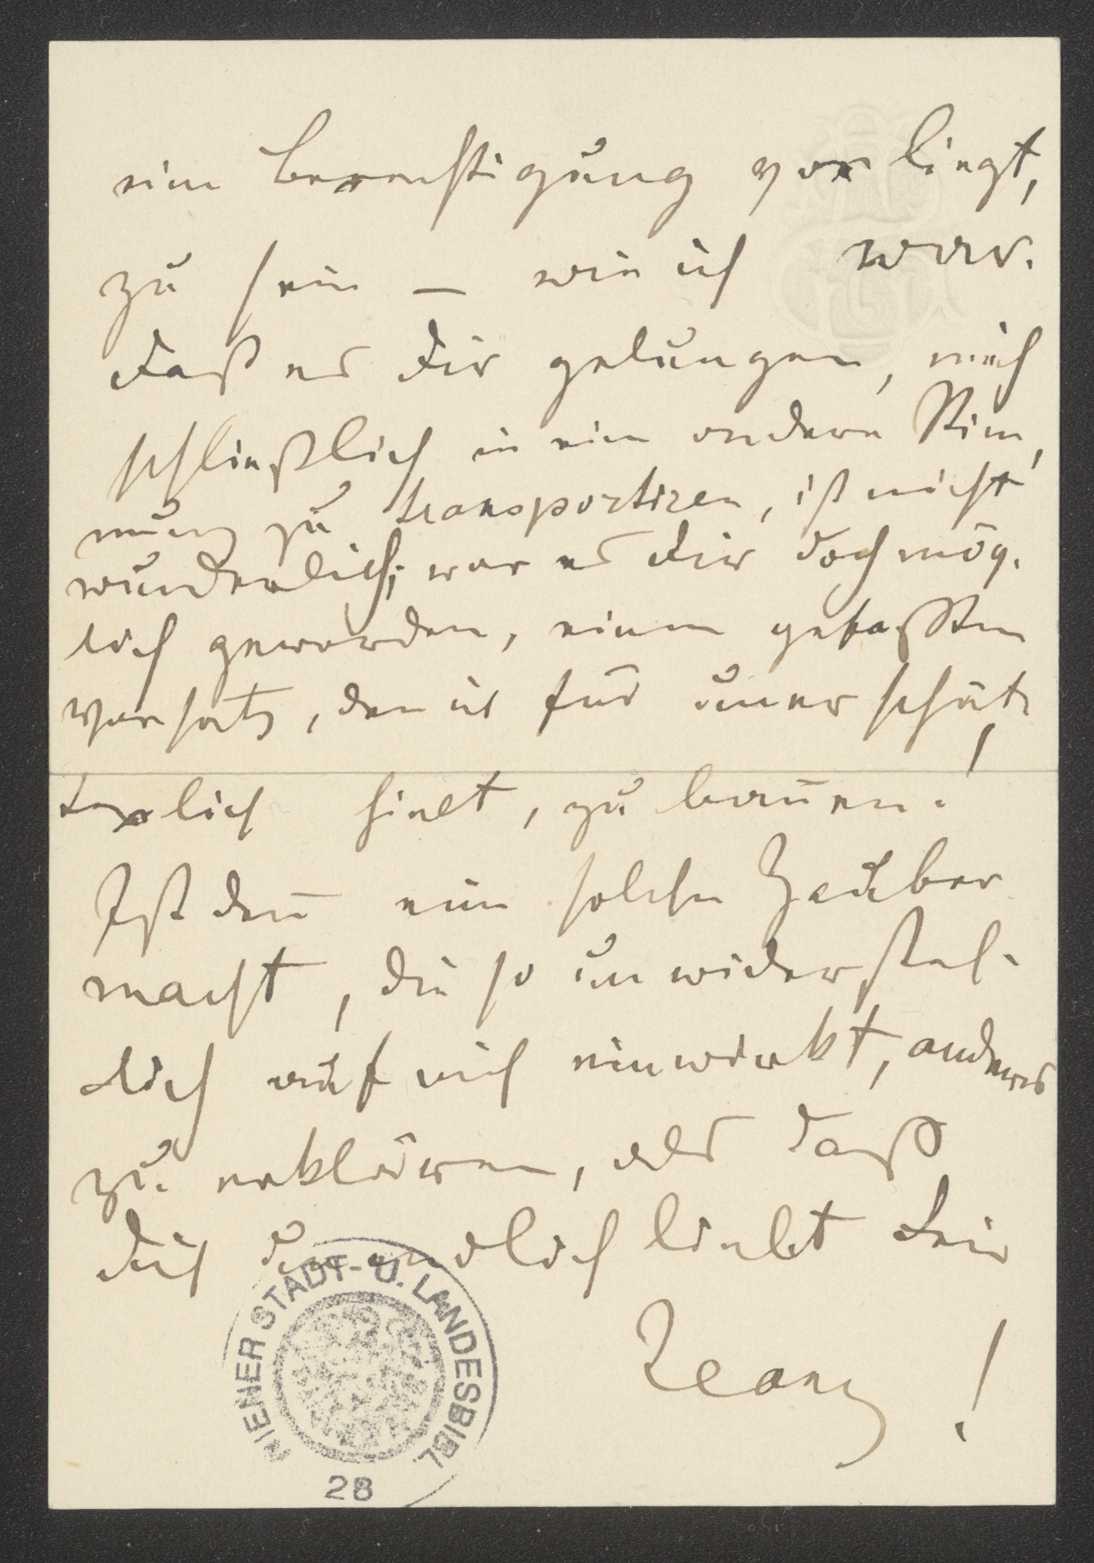 eine Berechtigung vorliegt,
zu sein — wie ich war.
Daß es Dir gelungen, mich
schließlich in eine andere Stim-
mung zu transportiren, ist nicht
wunderlich; war es Dir doch mög-
lich geworden, einen gefassten
Vorsatz, den ich für unerschüt-
terlich hielt, zu
Ist deñ eine solche Zauber
macht, die so unwidersteh-
lich auf mich einwirkt, anders
zu erklären, als daß
Dich unendlich liebt Dein
!
WIENER STADT- U. LANDESBIBL
28